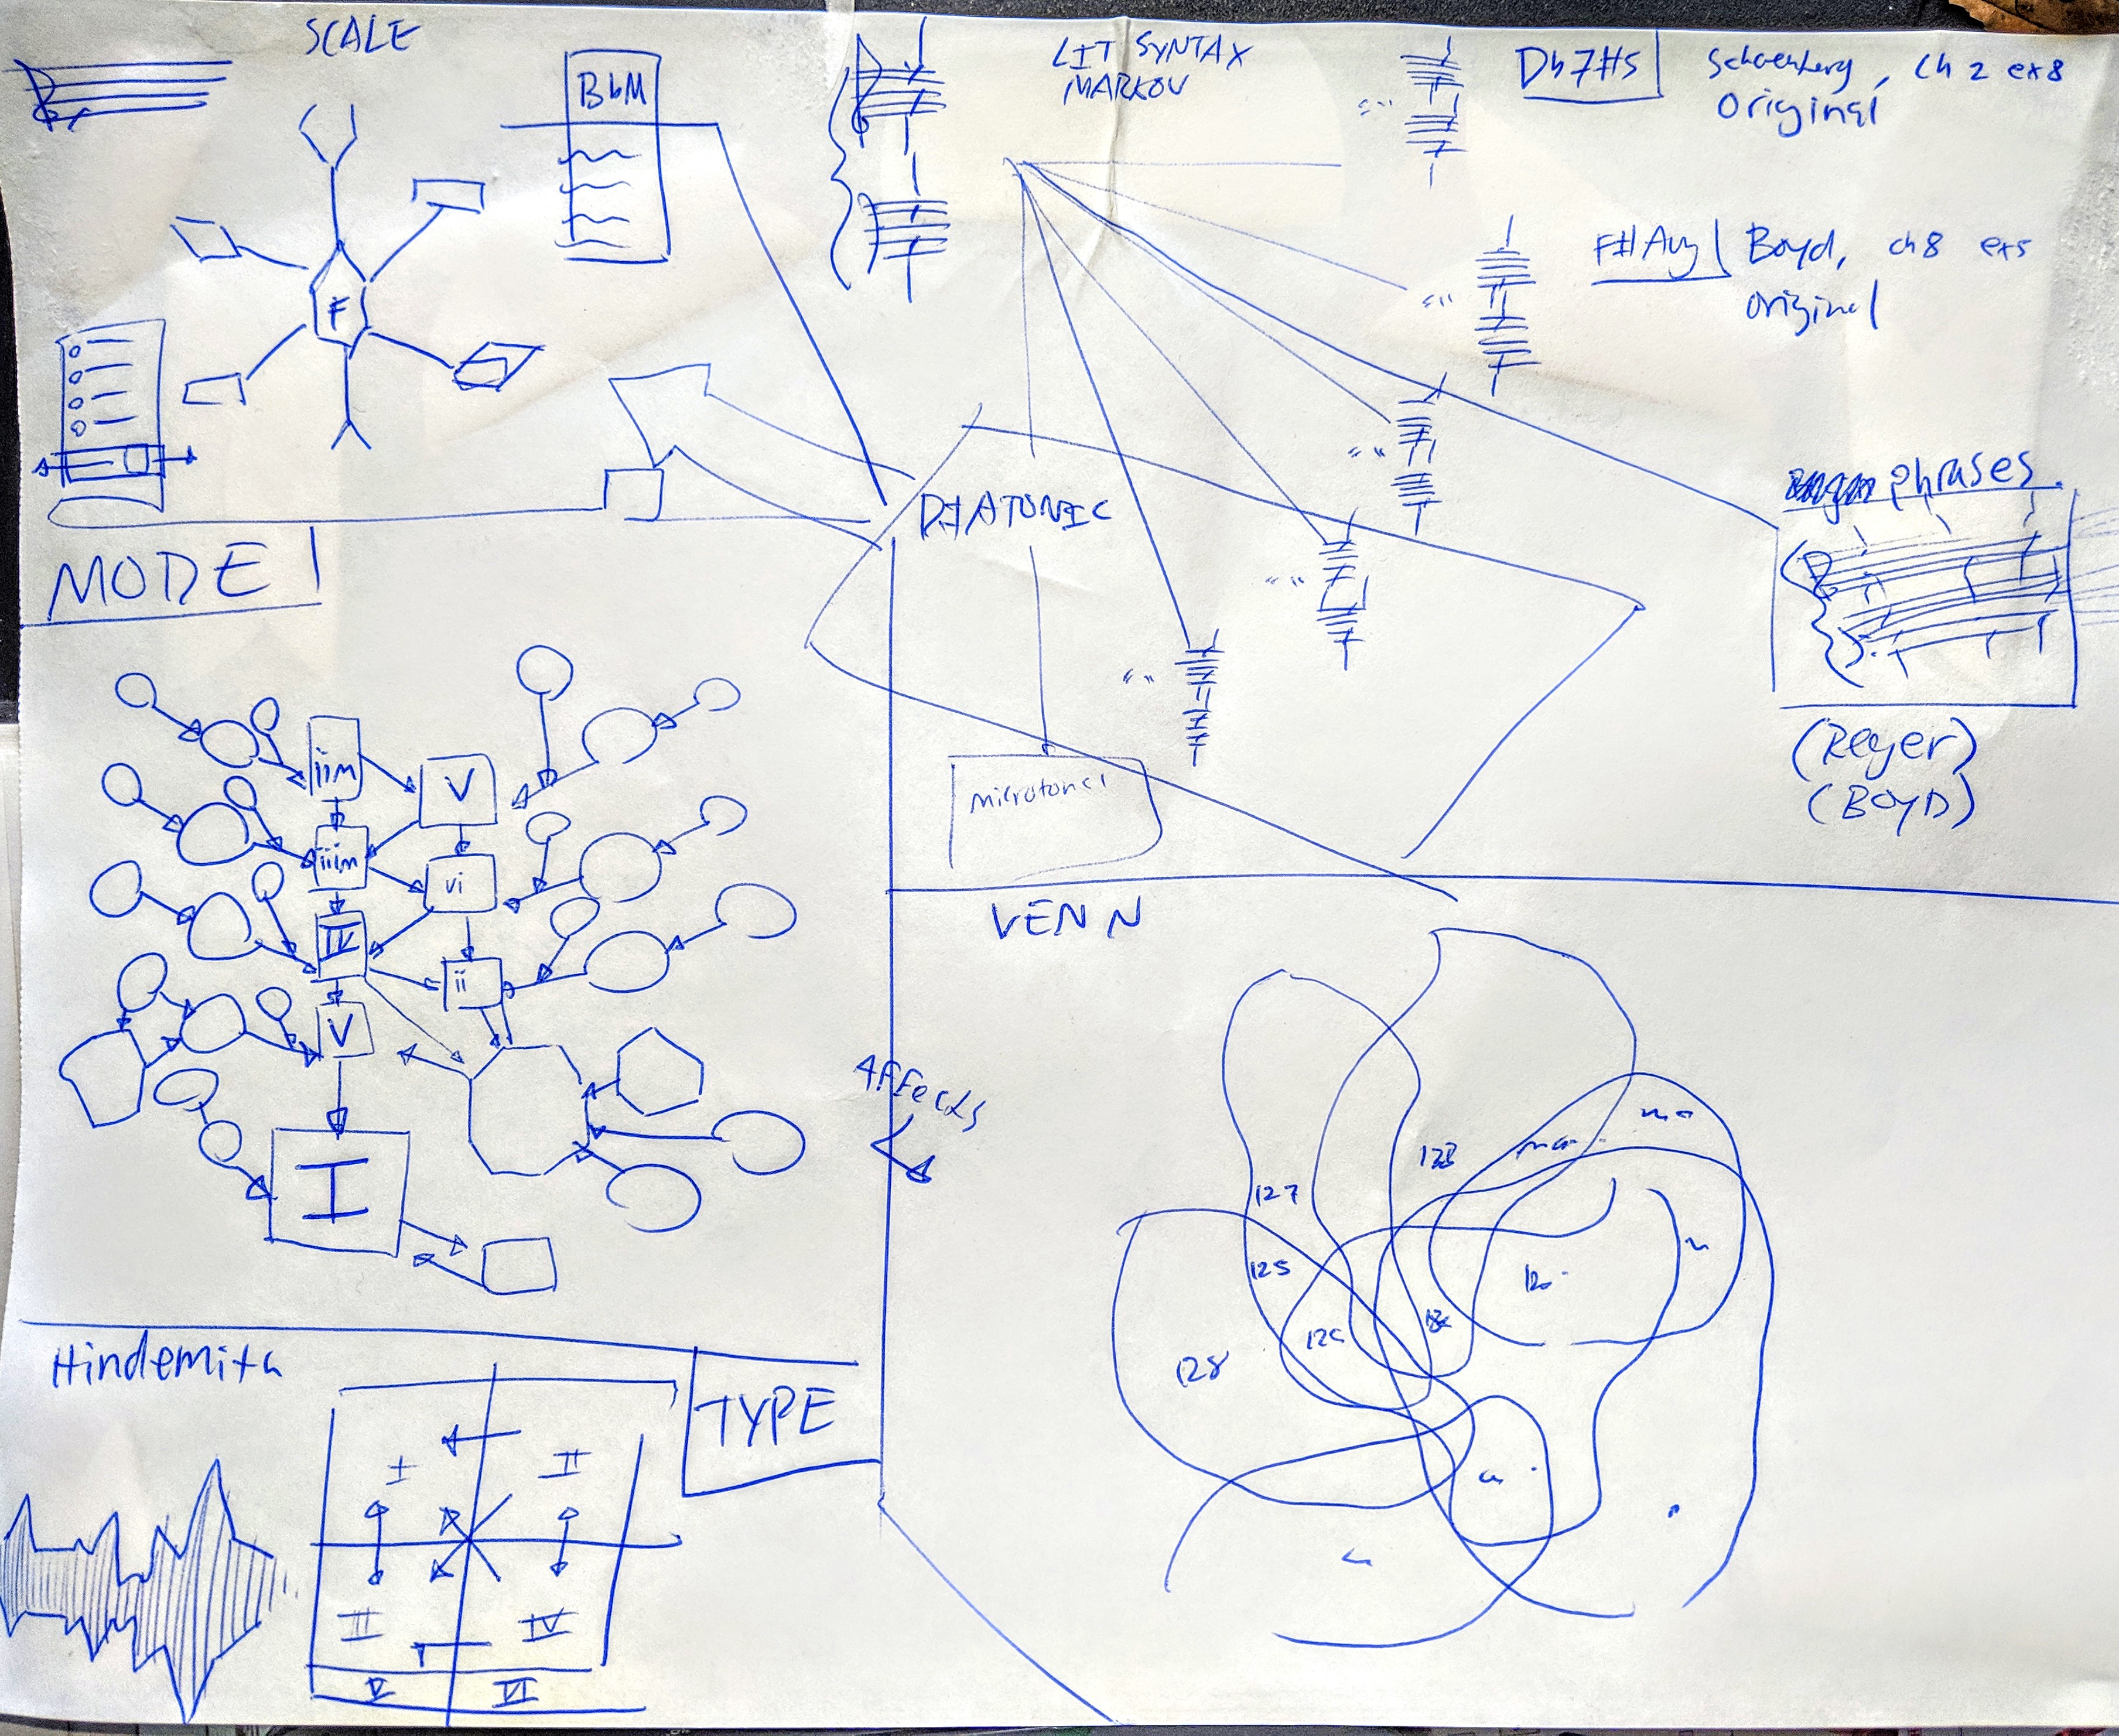 SCALE
BbM
LIT SYNTAX
MARKOV
Db7#5
Schoenberg, Ch 2 ex 8
Original
F#Aug
Boyd, ch 8 ex 5
original
F
DIATONIC
phrases
MODE 1
microtonal
(Reger)
(BOYD)
iim
V
iiim
vi
IV
ii
V
I
VENN
Affects
127
125
128
Hindemith
TYPE
I
II
III
IV
V
VI